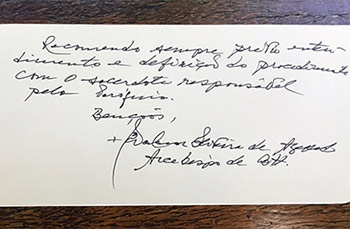 Recomendo sempre prévio enten-
dimento e definição do procedimento
com o sacerdote responsável
pela Paróquia.
Bençãos,
+ Walmor Oliveira de Azevedo
Arcebispo de BH.